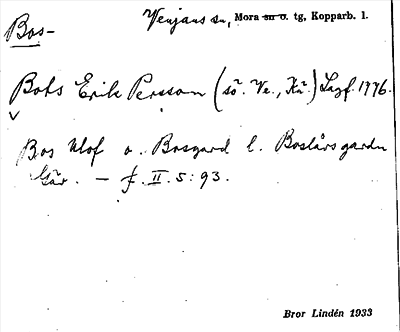 Bos-
Venjans sn, Mora sn o. tg, Kopparb. l.
Bots Erik Persson (sö. Ve., Kü.) Lagf. 1776.
Bos Olof o. Bosgard l. Boslårsgarden
— f. II. 5: 93.
Bror Lindén 1933